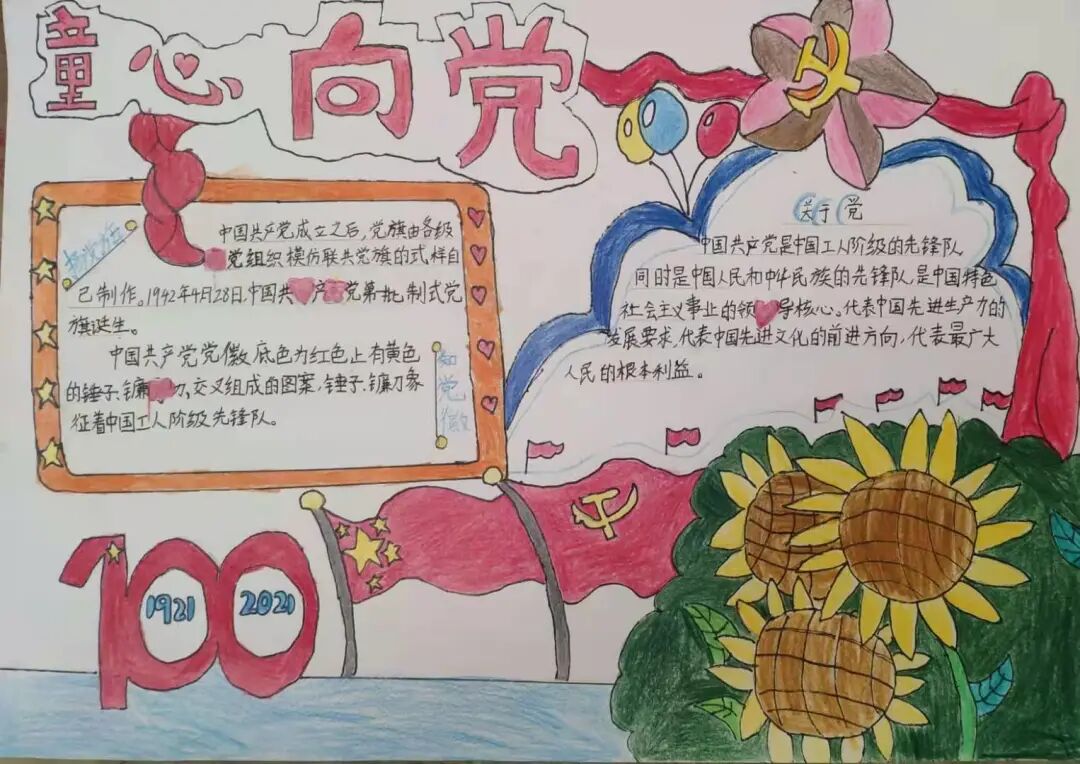 童心向党
中国共产党成立之后,党旗由各级
党组织模仿联共党旗的式样自
己制作。1942年4月28日,中国共产党第一批制式党
旗诞生。
中国共产党党徽底色为红色上有黄色
的锤子、镰刀、交叉组成的图案,锤子、镰刀象
征着中国工人阶级先锋队。
知党徽
关于党
中国共产党是中国工人阶级的先锋队
同时是中国人民和中华民族的先锋队,是中国特色
社会主义事业的领导核心。代表中国先进生产力的
发展要求,代表中国先进文化的前进方向,代表最广大
人民的根本利益。
100
1921
2021